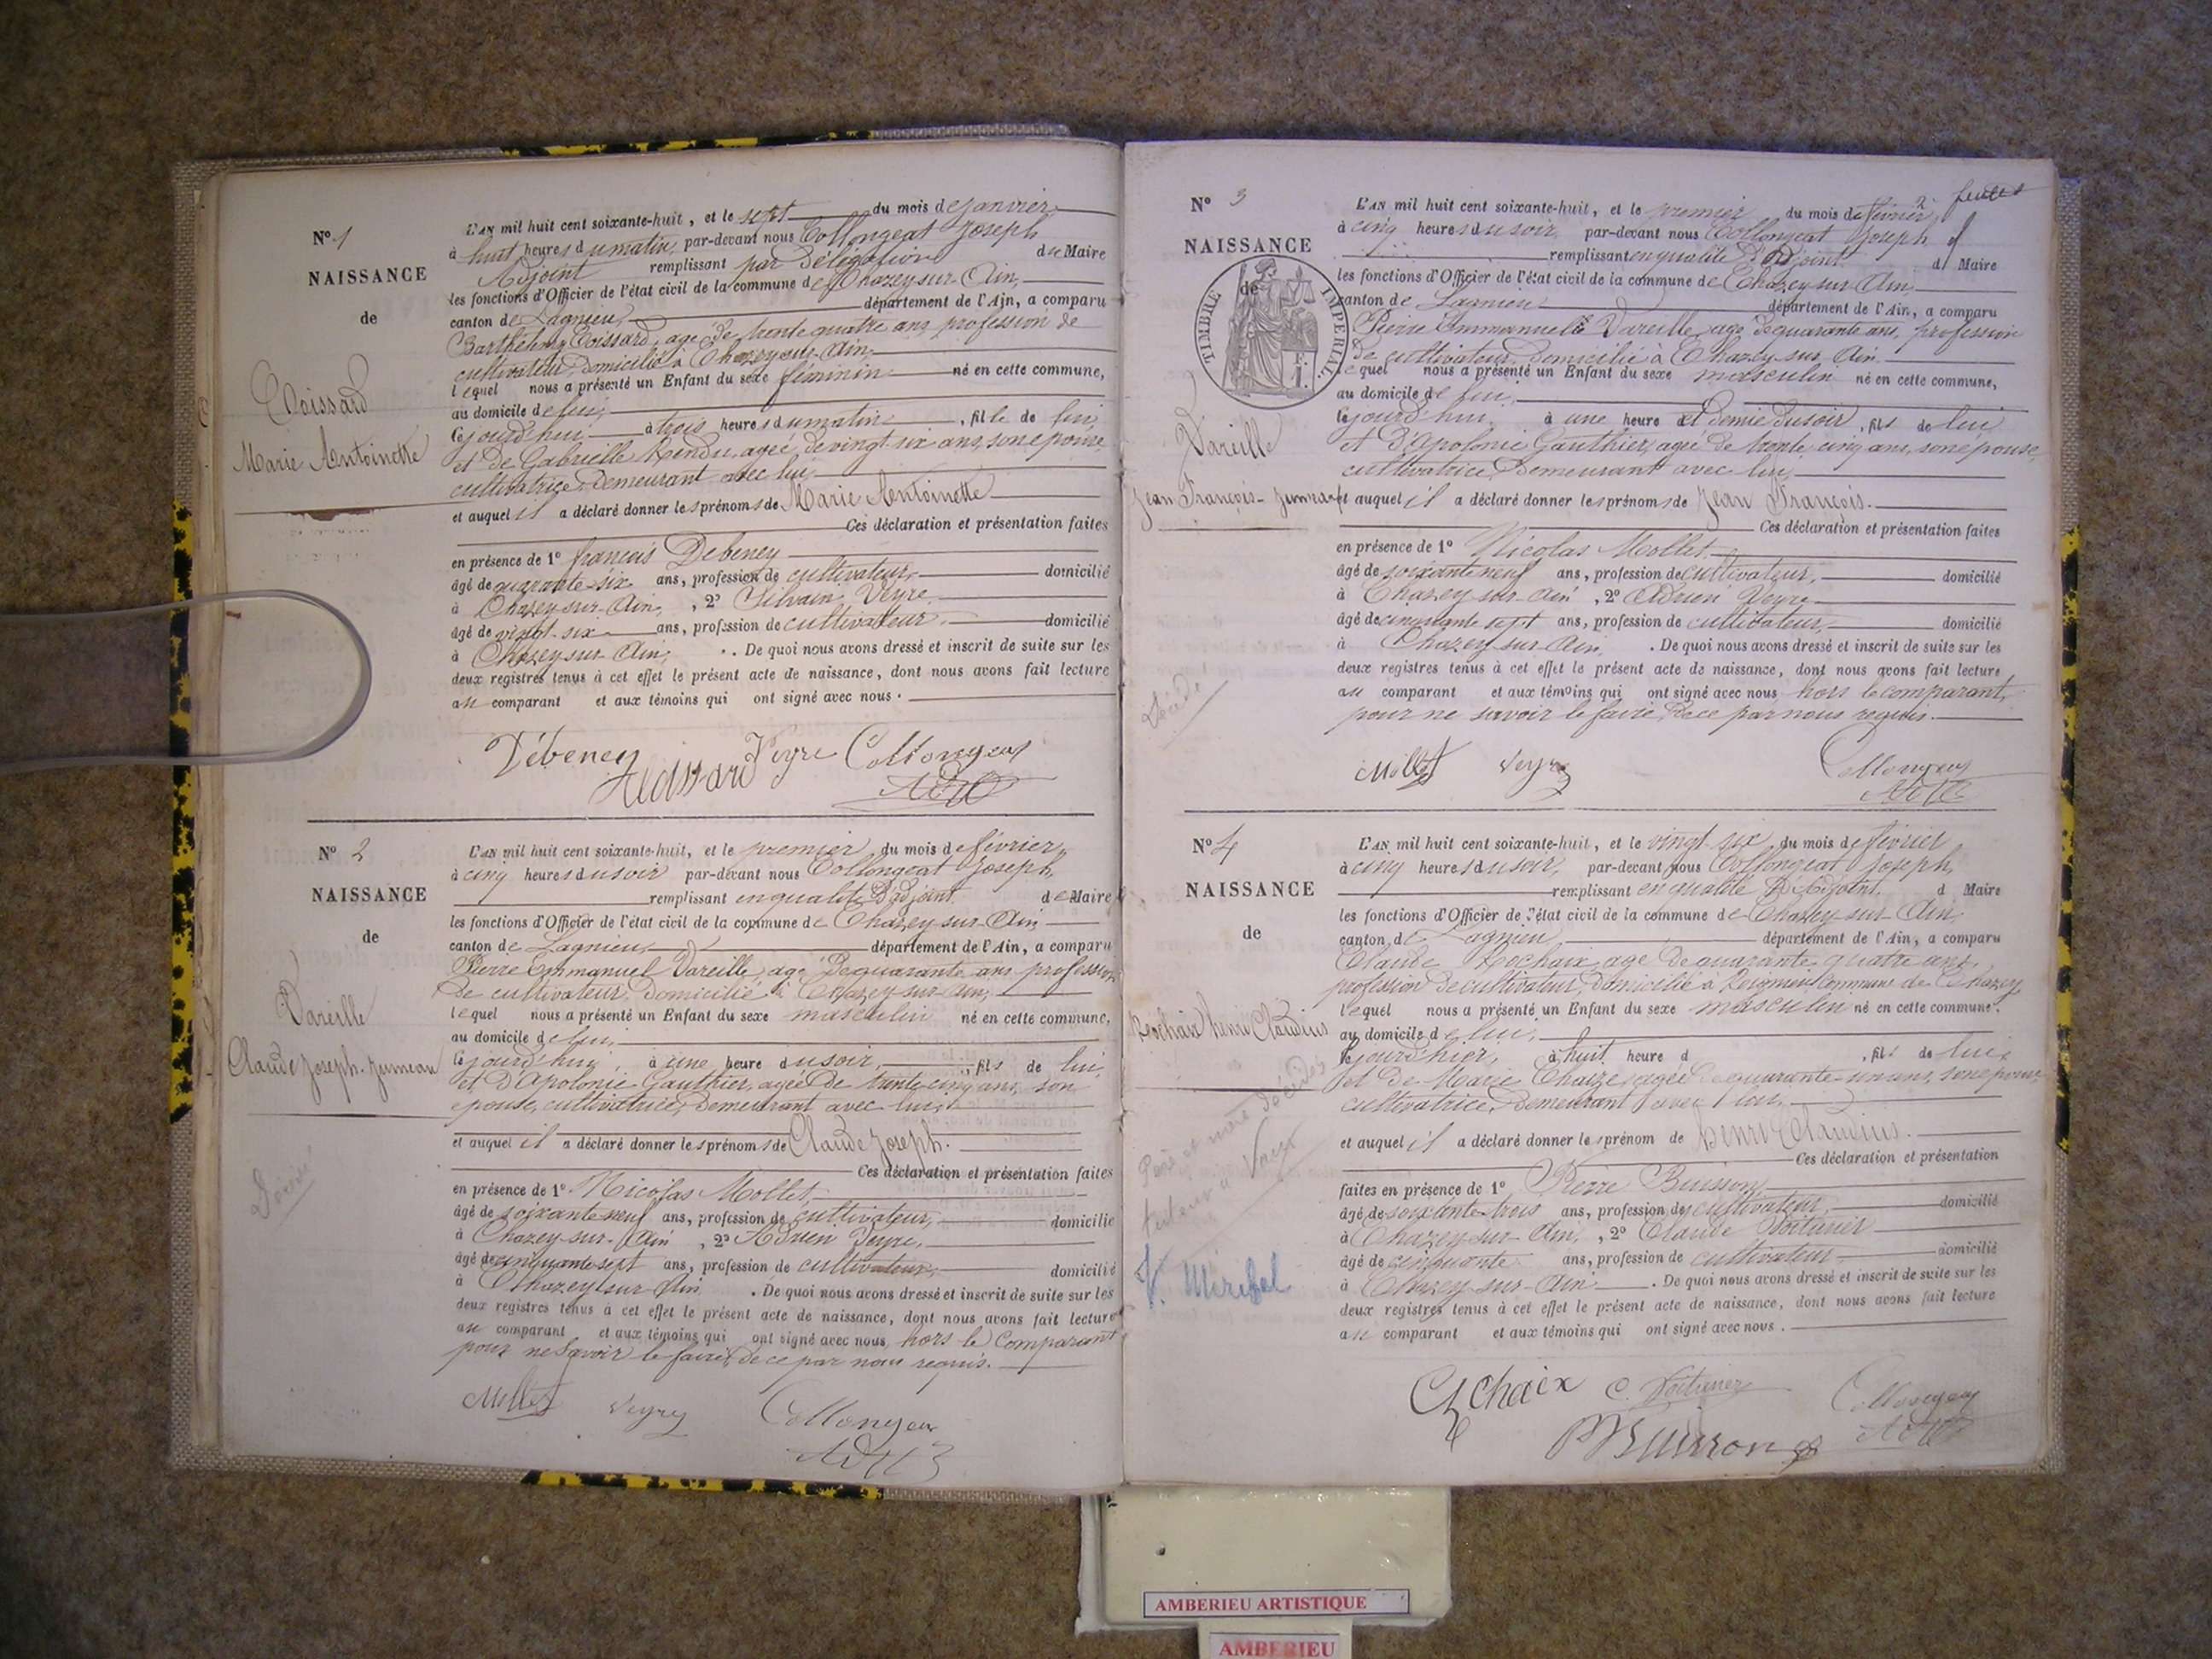 N° 1
NAISSANCE
de
Marie Antoinette
L'AN mil huit cent soixante-huit, et le sept du mois de janvier
à huit heures du matin, par-devant nous Collongeat Joseph
Adjoint remplissant par Délégation du Maire
les fonctions d'Officier de l'état civil de la commune de Chazey sur Ain,
canton de Lagnieu, département de l'Ain, a comparu
Barthélemy agé de trente quatre ans profession de
cultivateur, domicilié à Chazey sur Ain,
lequel nous a présenté un Enfant du sexe féminin né en cette commune,
au domicile de lui,
cejourd'hui à trois heures du matin, fille de lui,
et de Gabrielle Rendu, agée de vingt six ans, son épouse,
cultivatrice, demeurant avec lui
et auquel il a déclaré donner les prénoms de Marie Antoinette
Ces déclaration et présentation faites
en présence de 1° françois Debeney
âgé de quarante six ans, profession de cultivateur, domicilié
à Chazey-sur-Ain, , 2° Silvain Veyre
âgé de vingt-six ans, profession de cultivateur, domicilié
à Chazey sur Ain, . De quoi nous avons dressé et inscrit de suite sur les
deux registres tenus à cet effet le présent acte de naissance, dont nous avons fait lecture
au comparant et aux témoins qui ont signé avec nous.
Débeney Veyre Collongeat
N° 2
NAISSANCE
de
Vareille
Claude Joseph. Jumeau
L'AN mil huit cent soixante-huit, et le premier du mois de février,
à cinq heures du soir par-devant nous Collongeat Joseph,
remplissant en qualité d'adjoint de Maire
les fonctions d'Officier de l'état civil de la commune de Chazey-sur-Ain
canton de Lagnieu, département de l'Ain, a comparu
Pierre Emmanuel Vareille, agé de quarante ans profession
de cultivateur, domicilié à Chazey-sur-Ain,
lequel nous a présenté un Enfant du sexe masculin né en cette commune,
au domicile de lui,
cejourd'hui à une heure du soir, , fils de lui,
et d'Apolonie Gauthier, agée de trente cinq ans, son
épouse, cultivatrice, demeurant avec lui,
et auquel il a déclaré donner les prénoms de Claude Joseph.
Ces déclaration et présentation faites
en présence de 1° Nicolas Mollet
âgé de soixante neuf ans, profession de cultivateur, domicilié
à Chazey-sur-Ain , 2° Adrien Veyre,
âgé de cinquante sept ans, profession de cultivateur, domicilié
à Chazey sur Ain . De quoi nous avons dressé et inscrit de suite sur les
deux registres tenus à cet effet le présent acte de naissance, dont nous avons fait lecture
au comparant et aux témoins qui ont signé avec nous hors le Comparant
pour ne savoir le faire, de ce par nous requis.
Mollet Veyre Collongeat
N° 3
NAISSANCE
de
TIMBRE IMPERIAL
Vareille
Jean François - Jumeau
Décédé
L'AN mil huit cent soixante-huit, et le premier du mois de février,
à cinq heures du soir, par-devant nous Collongeat Joseph
remplissant en qualité d'Adjoint d Maire
les fonctions d'Officier de l'état civil de la commune de Chazey-sur-Ain
canton de Lagnieu département de l'Ain, a comparu
Pierre Emmanuel Vareille, agé de quarante ans, profession
de cultivateur, domicilié à Chazey-sur-Ain
lequel nous a présenté un Enfant du sexe masculin né en cette commune,
au domicile de lui,
cejourd'hui, à une heure et demie du soir, fils de lui
et d'Apolonie Gauthier, agée de trente cinq ans, son épouse,
cultivatrice, demeurant avec lui,
et auquel il a déclaré donner les prénoms de Jean François.
Ces déclaration et présentation faites
en présence de 1° Nicolas Mollet
âgé de soixante neuf ans, profession de cultivateur, domicilié
à Chazey-sur-Ain , 2° Adrien Veyre
âgé de cinquante sept ans, profession de cultivateur, domicilié
à Chazey sur Ain . De quoi nous avons dressé et inscrit de suite sur les
deux registres tenus à cet effet le présent acte de naissance, dont nous avons fait lecture
au comparant et aux témoins qui ont signé avec nous hors le comparant,
pour ne savoir le faire, de ce par nous requis.
Mollet Veyre Collongeat
N° 4
NAISSANCE
de
Rochaix henri Claudius
Père et mère décédés
tuteur à
V. Miribel
L'AN mil huit cent soixante-huit, et le vingt six du mois de février
à cinq heures du soir, par-devant nous Collongeat Joseph,
remplissant en qualité d'Adjoint d Maire
les fonctions d'Officier de l'état civil de la commune de Chazey-sur-Ain,
canton de Lagnieu département de l'Ain, a comparu
Claude Rochaix, agé de quarante quatre ans,
profession de cultivateur, domicilié à Commune de Chazey
lequel nous a présenté un Enfant du sexe masculin né en cette commune.
au domicile de lui,
lejour d'hier, à huit heure d , fils de lui,
et de Marie Chaize, agée de quarante-un ans, son épouse
cultivatrice, demeurant avec lui,
et auquel il a déclaré donner les prénom de henri Claudius.
Ces déclaration et présentation
faites en présence de 1° Pierre Buisson
âgé de soixante-trois ans, profession de cultivateur, domicilié
à Chazey-sur-Ain, , 2° Claude
âgé de cinquante ans, profession de cultivateur domicilié
à Chazey-sur-Ain . De quoi nous avons dressé et inscrit de suite sur les
deux registres tenus à cet effet le présent acte de naissance, dont nous avons fait lecture
au comparant et aux témoins qui ont signé avec nous.
Rochaix Collongeat
Buisson
AMBERIEU ARTISTIQUE
AMBERIEU